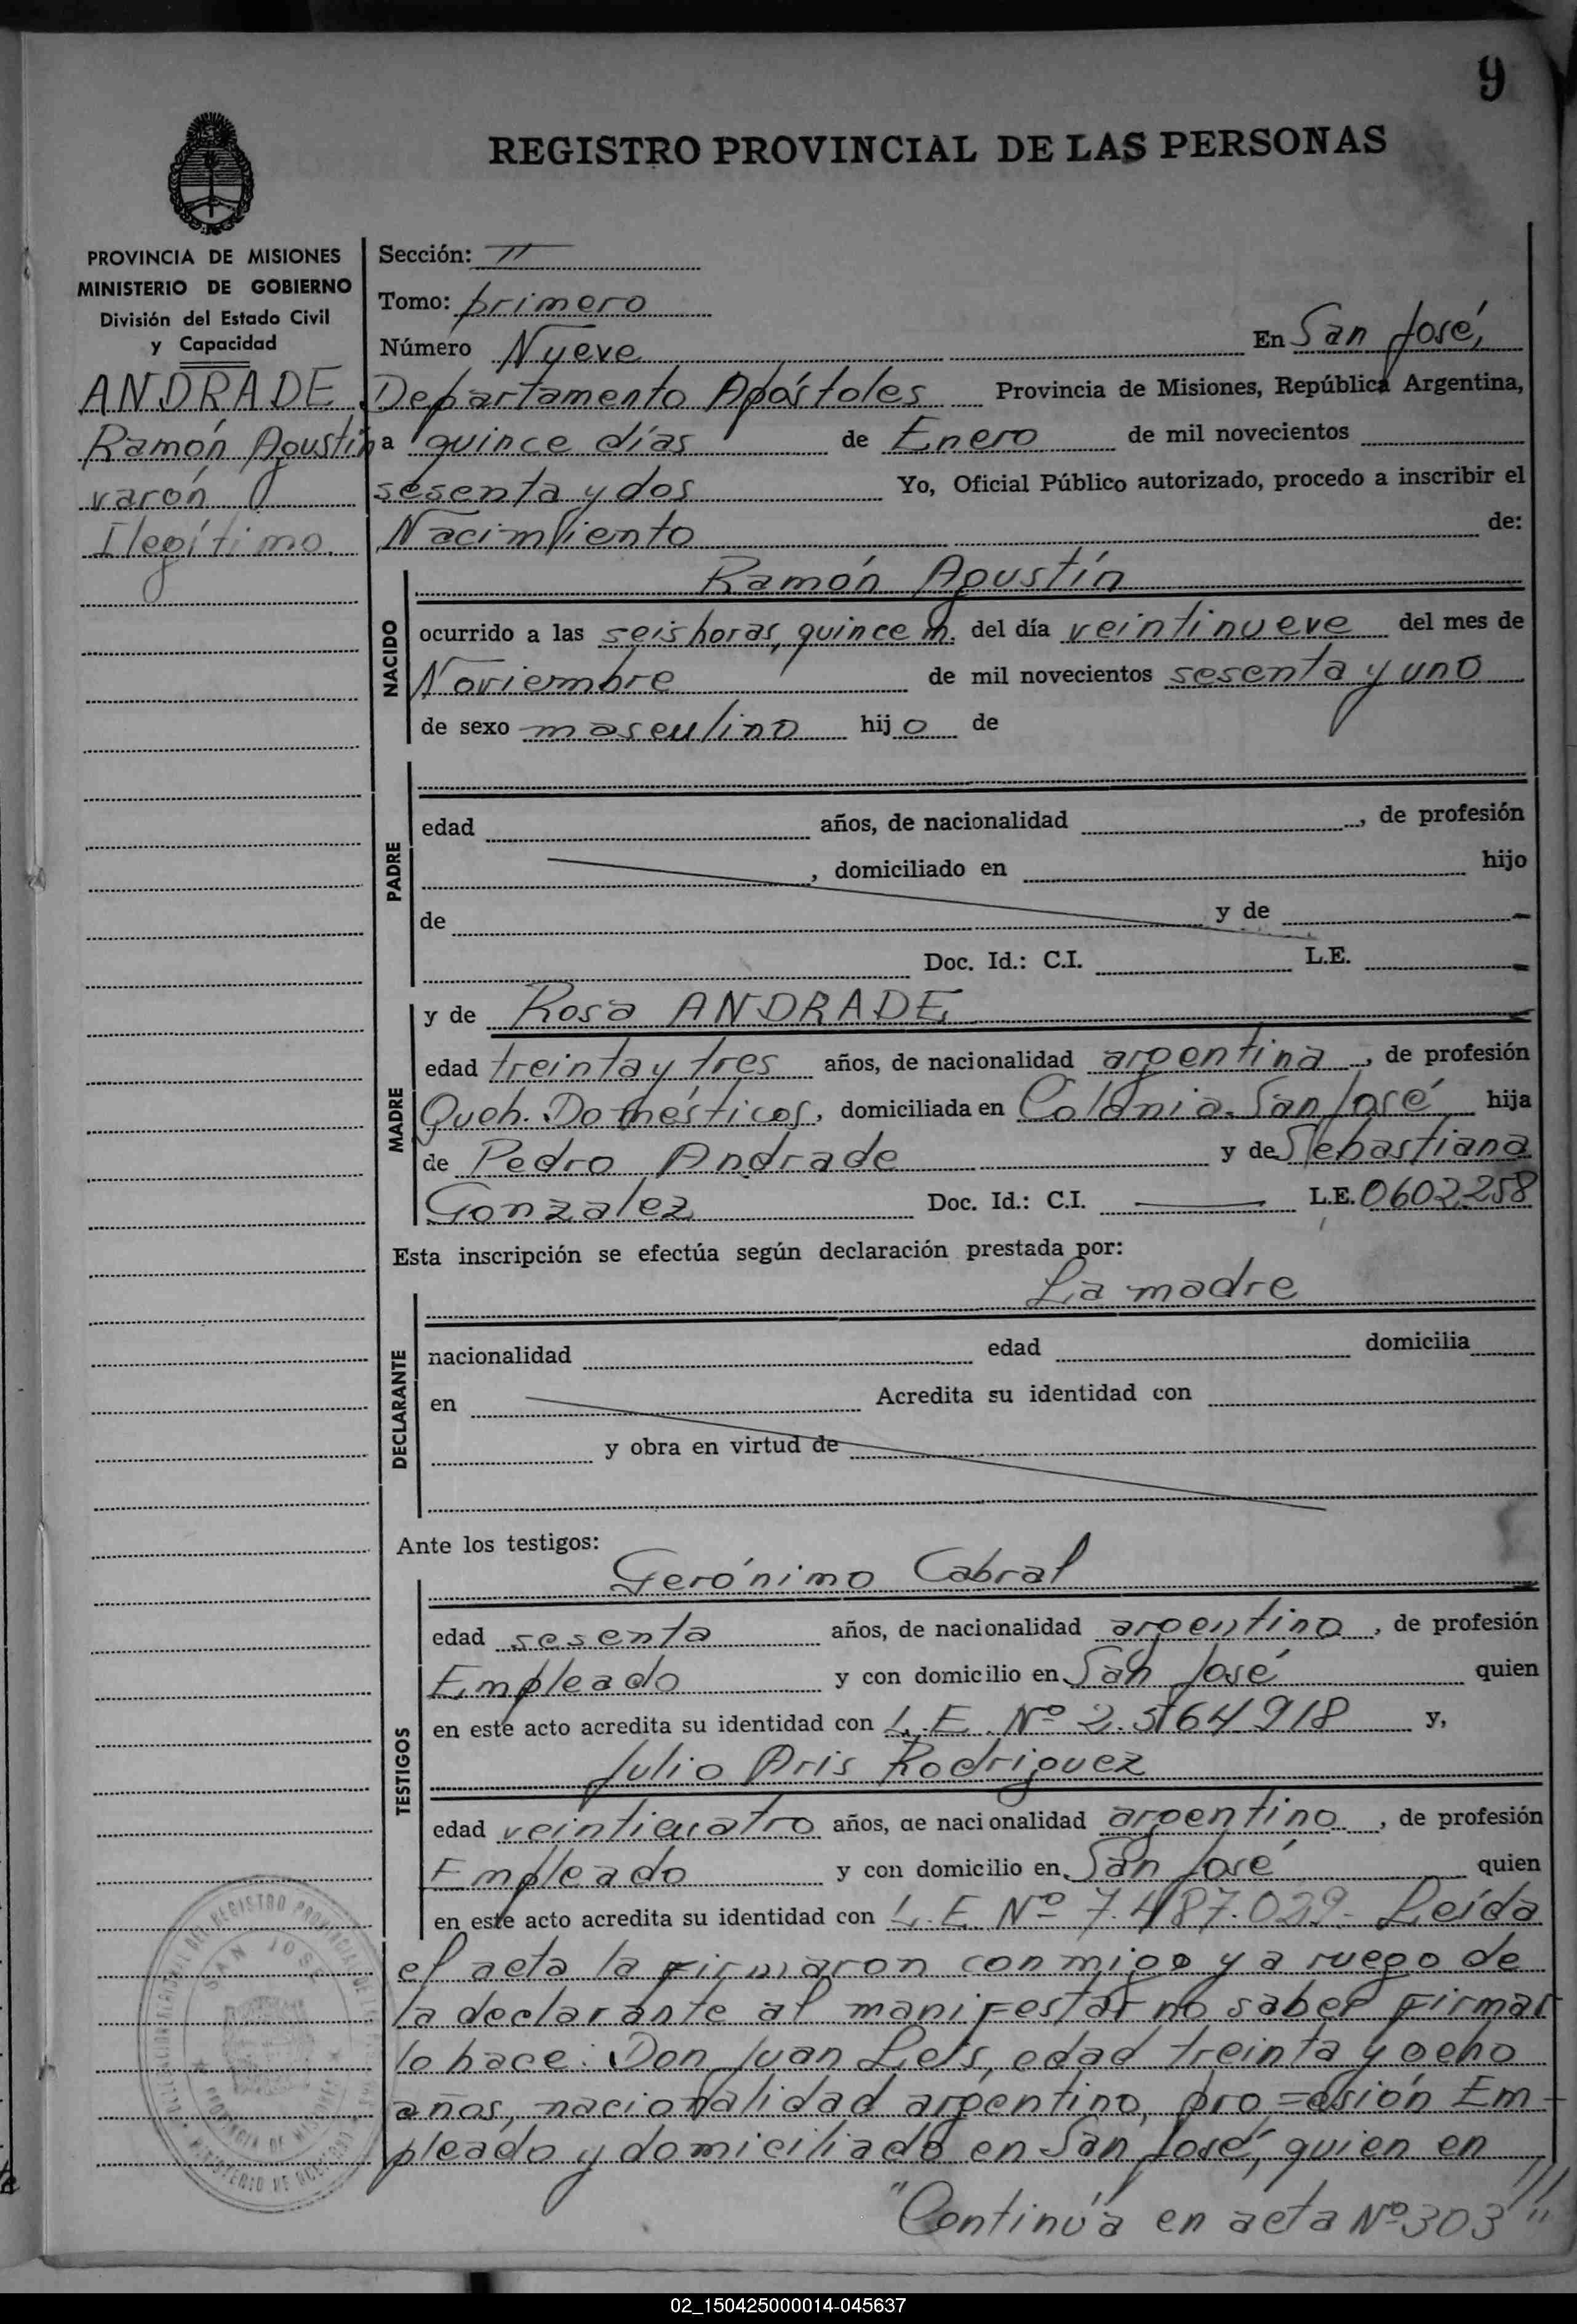 9
REGISTRO PROVINCIAL DE LAS PERSONAS
PROVINCIA DE MISIONES
MINISTERIO DE GOBIERNO
División del Estado Civil
y Capacidad
ANDRADE
Ramón Agustín
varón
Ilegítimo.
Sección: II
Tomo: primero
Número Nueve En San José,
Departamento Apóstoles Provincia de Misiones, República Argentina,
a quince días de Enero de mil novecientos
sesenta y dos Yo, Oficial Público autorizado, procedo a inscribir el
Nacimiento de:
NACIDO
Ramón Agustín
ocurrido a las seis horas, quince m. del día veintinueve del mes de
Noviembre de mil novecientos sesenta y uno
de sexo masculino hijo de
PADRE
edad años, de nacionalidad , de profesión
, domiciliado en hijo
de y de
Doc. Id.: C.I. L.E.
MADRE
y de Rosa ANDRADE
edad treinta y tres años, de nacionalidad argentina, de profesión
Queh. Domésticos, domiciliada en Colonia San José hija
de Pedro Andrade y de Sebastiana
Gonzalez Doc. Id.: C.I. L.E. 0602258
Esta inscripción se efectúa según declaración prestada por:
La madre
DECLARANTE
nacionalidad edad domicilia
en Acredita su identidad con
y obra en virtud de
Ante los testigos:
TESTIGOS
Gerónimo Cabral
edad sesenta años, de nacionalidad argentino, de profesión
Empleado y con domicilio en San José quien
en este acto acredita su identidad con L.E. Nº 2.564918 y,
Julio Aris Rodriguez
edad veinticuatro años, de nacionalidad argentino, de profesión
Empleado y con domicilio en San José quien
en este acto acredita su identidad con L.E. Nº 7.487.029- Leída
el acta la firmaron conmigo y a ruego de
la declarante al manifestar no saber firmar
lo hace: Don Juan Leis, edad treinta y ocho
años, nacionalidad argentino, profesión Em-
pleado y domiciliado en San José, quien en
"Continúa en acta Nº 303"
SAN JOSE
PROVINCIA DE MISIONES
02_150425000014-045637